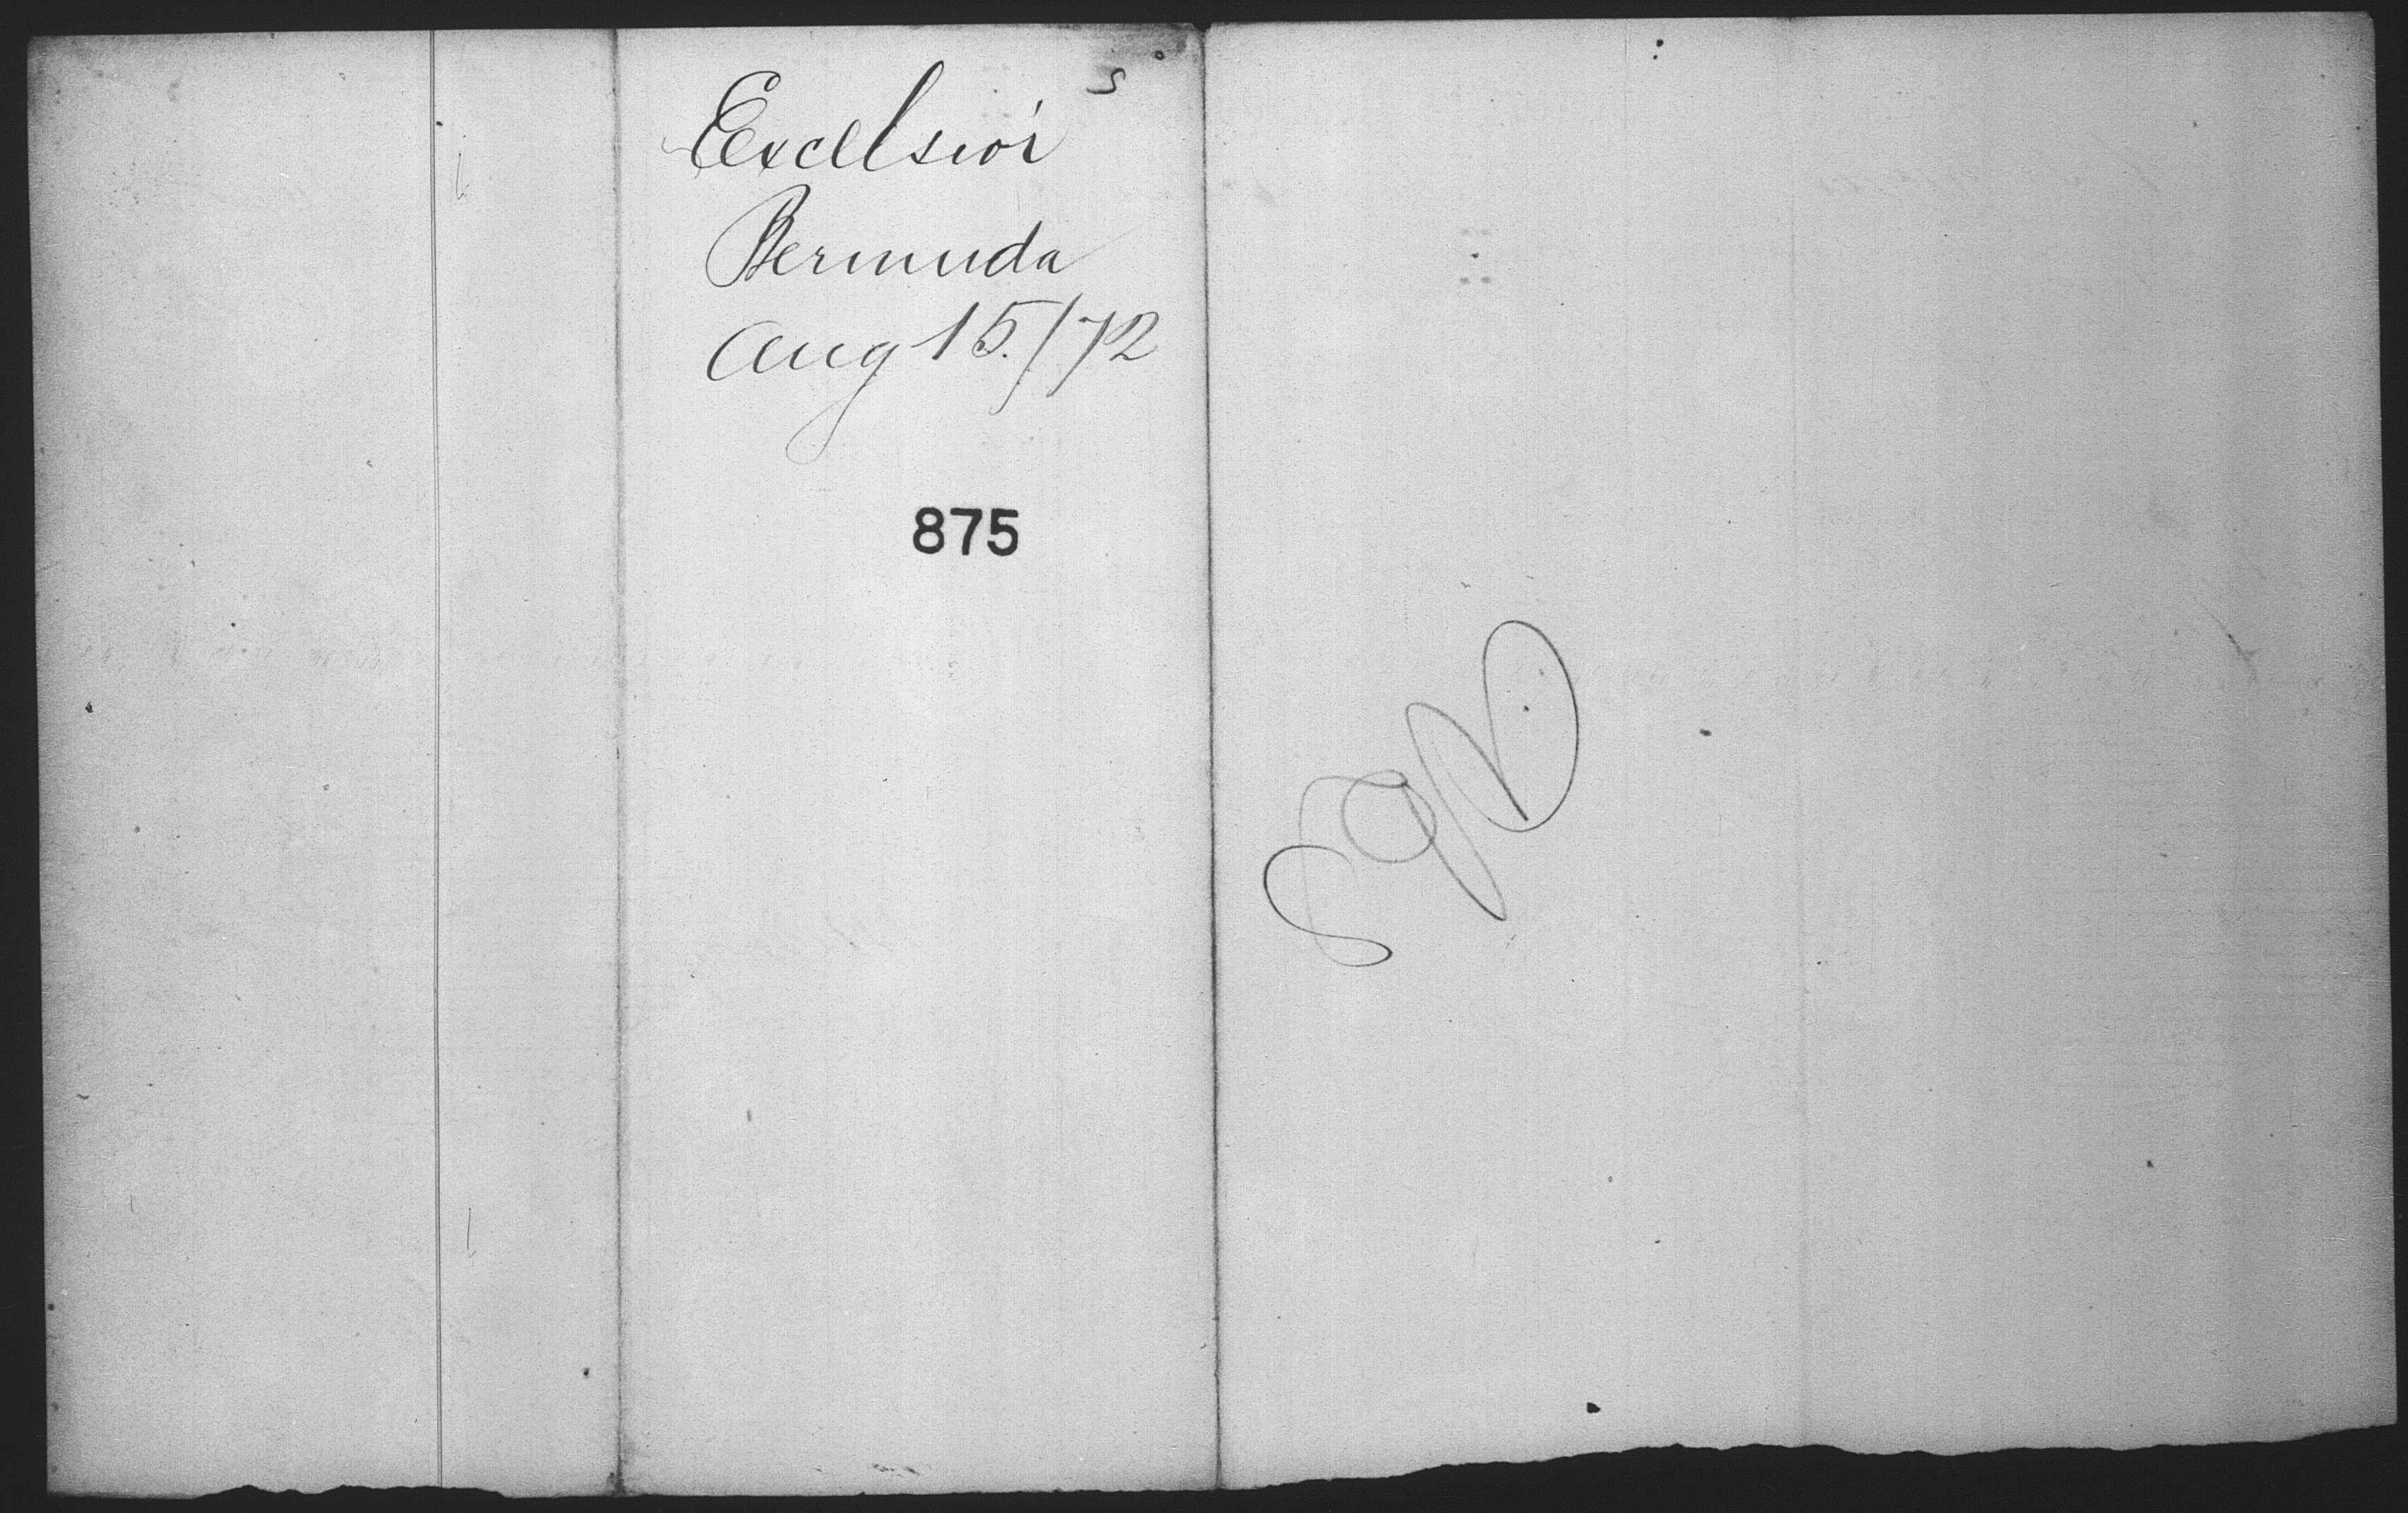 s
Excelsior
Bermuda
Aug 15./72
875